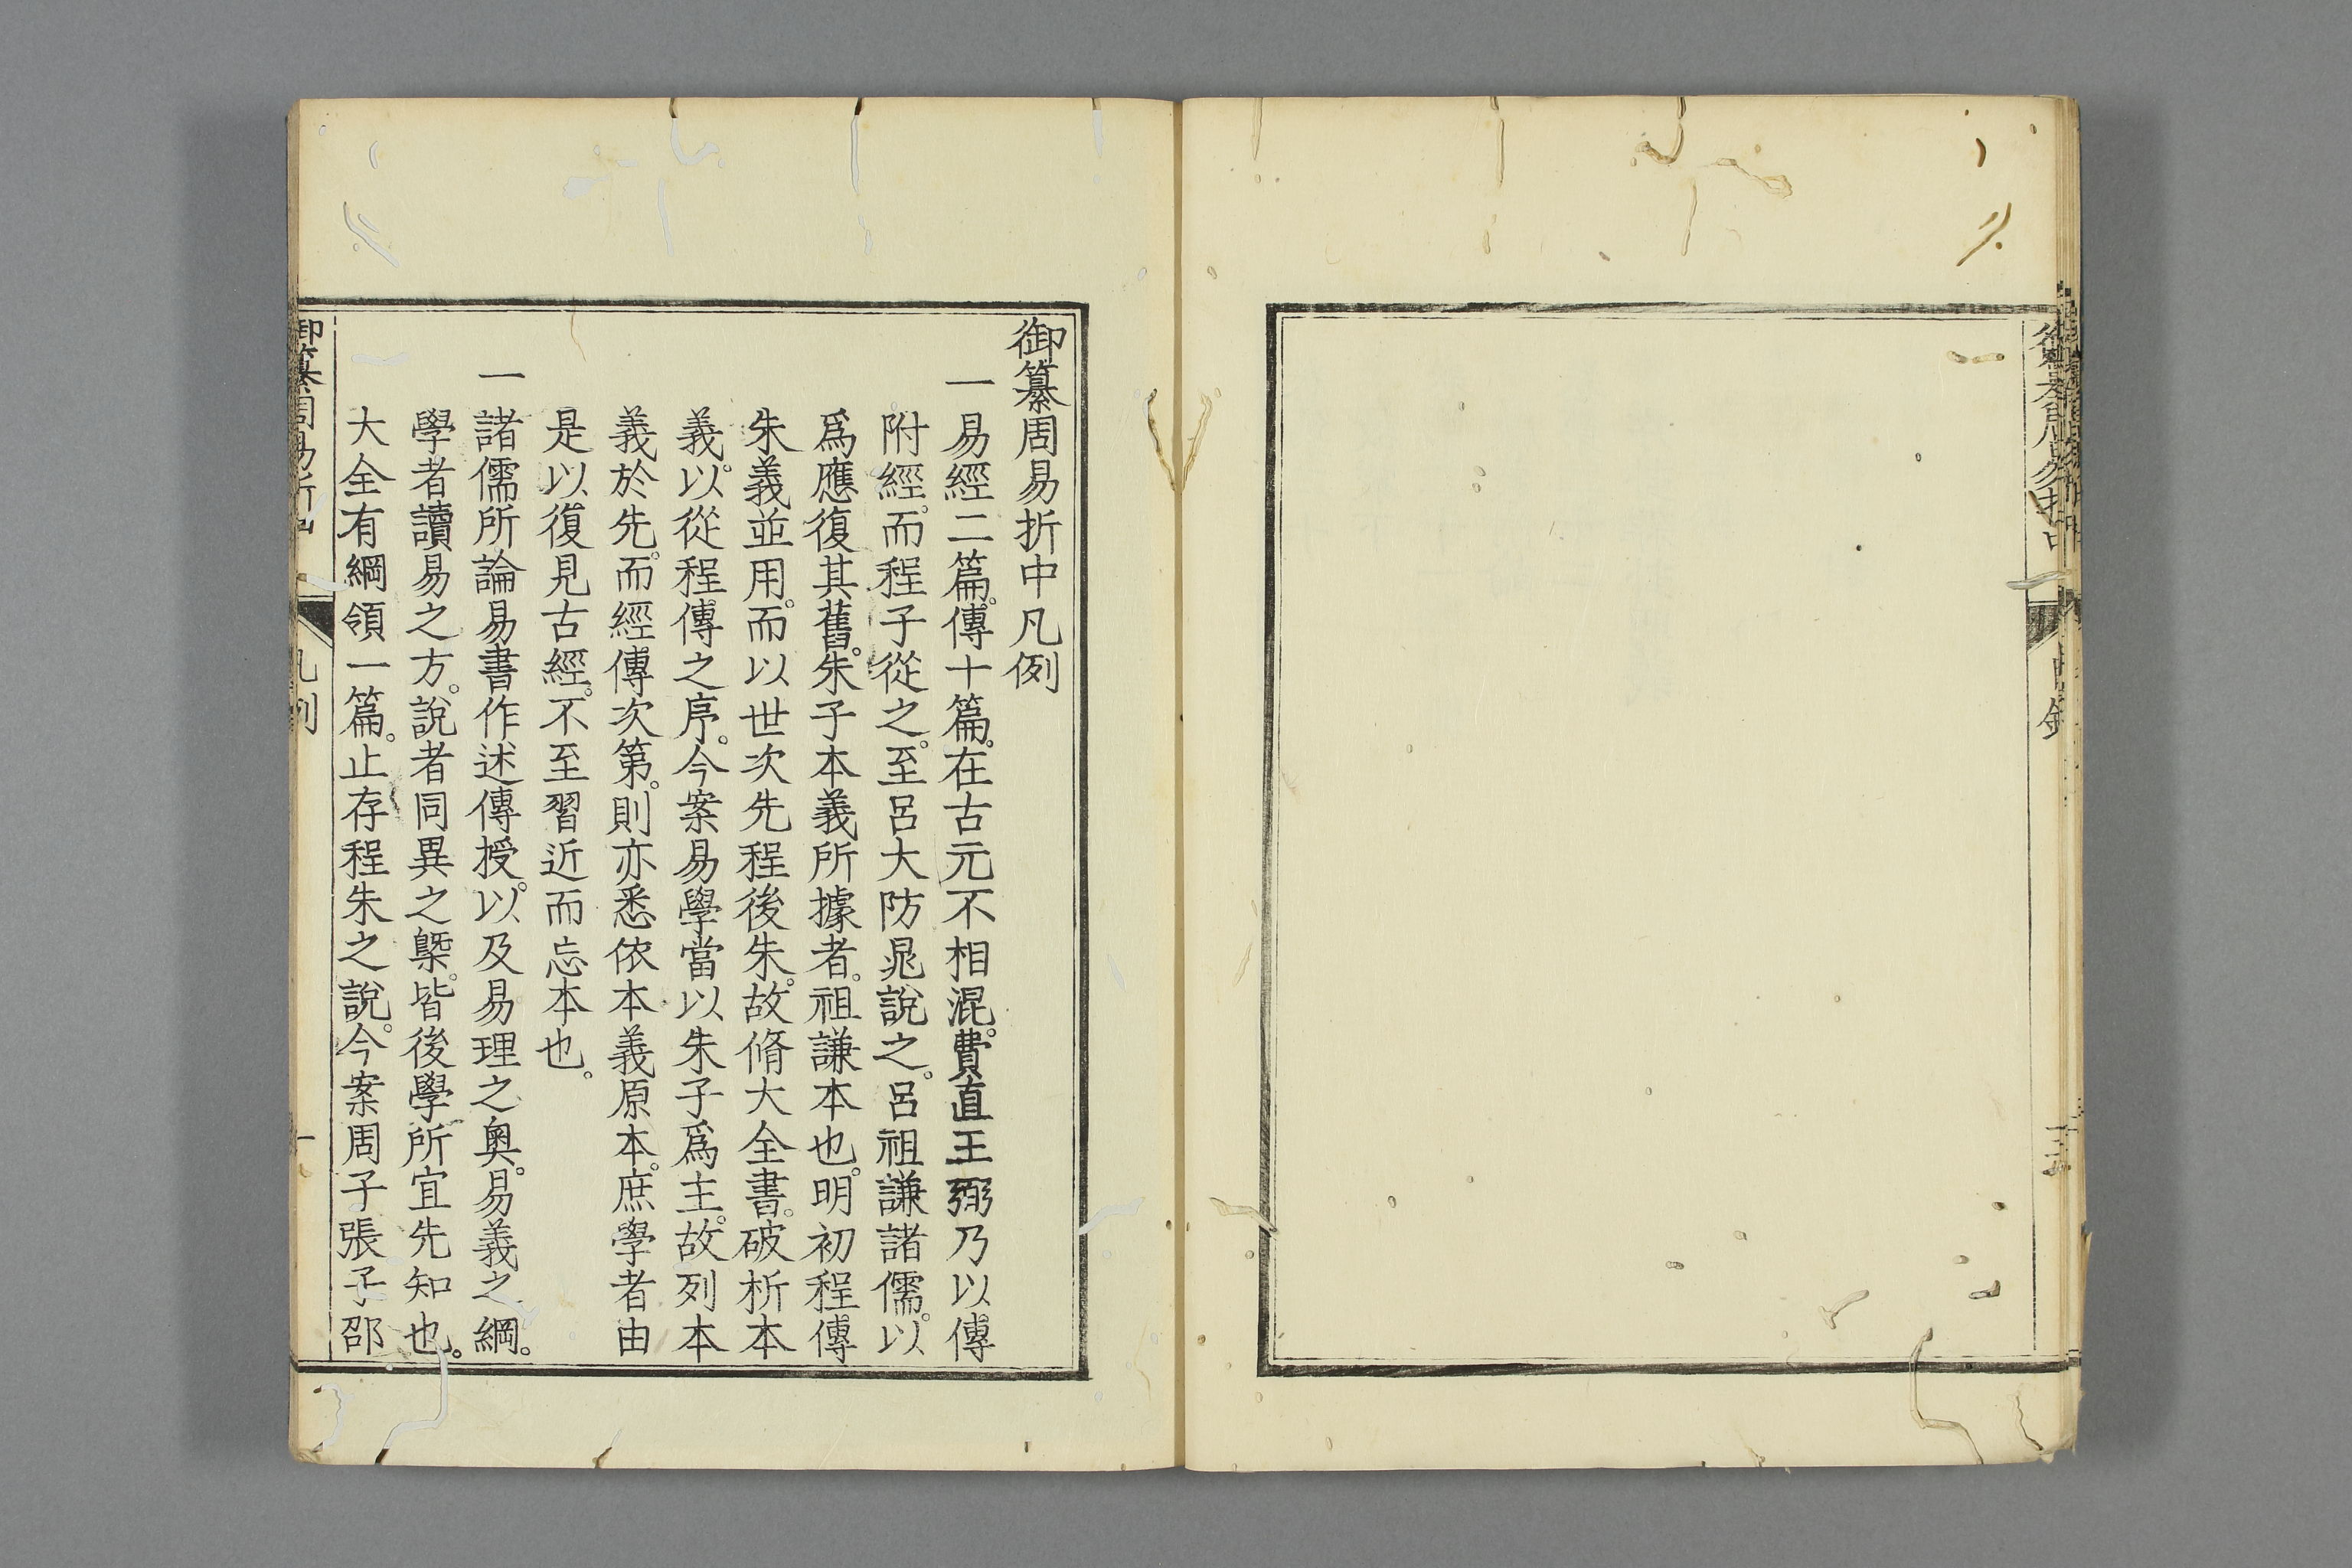 御纂周易折中凡例
一易經二篇。傳十篇。在古元不相混。費直王弼乃以傳
附經。而程子從之。至呂大防晁說之。呂祖謙諸儒。以
爲應復其舊。朱子本義所據者。祖謙本也。明初程傳
朱義並用。而以世次先程後朱。故脩大全書。破析本
義。以從程傳之序。今案易學當以朱子爲主。故列本
義於先。而經傳次第。則亦悉依本義原本。庶學者由
是以復見古經。不至習近而忘本也。
一諸儒所論易書作述傳授。以及易理之奧。易義之綱。
學者讀易之方。說者同異之槩。皆後學所宜先知也。
大全有綱領一篇。止存程朱之說。今案周子張子邵
御纂周易折中
凡例
一